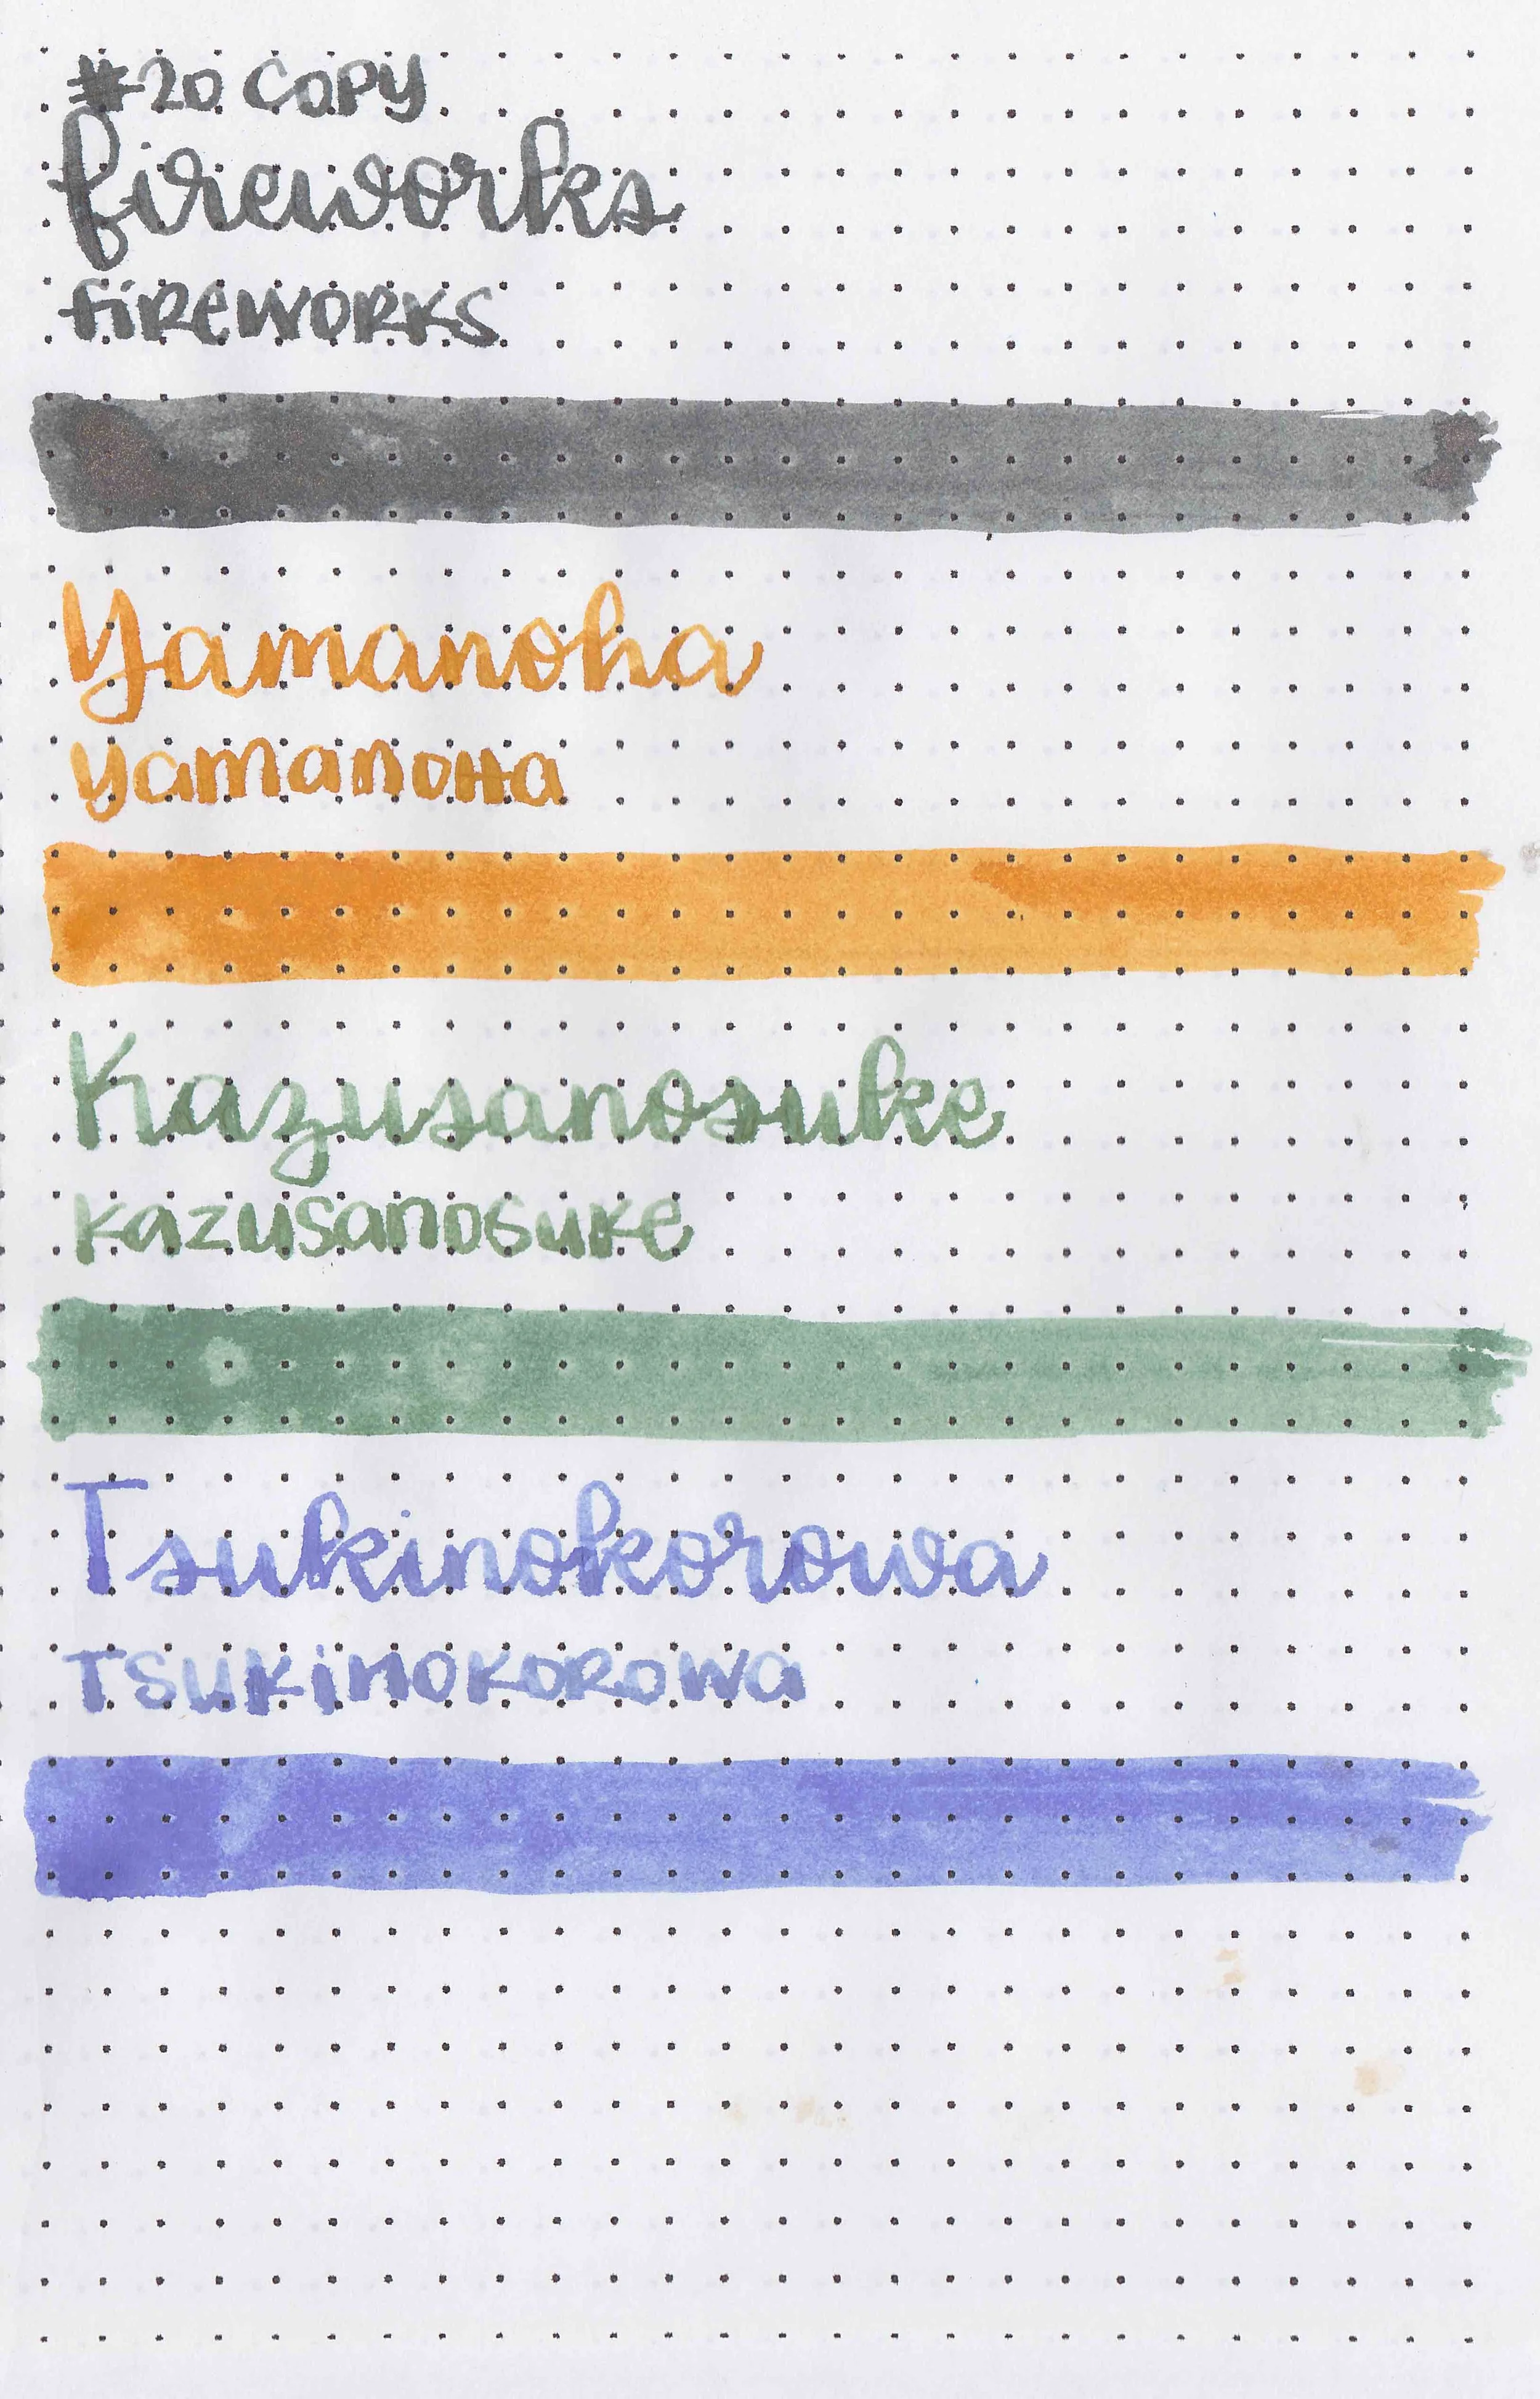 #20 COPY
fireworks
FIREWORKS
Yamanoha
YamanoHa
Kazusanosuke
KazuSanoSuKe
Tsukinokorowa
TSUKINOKOROWa